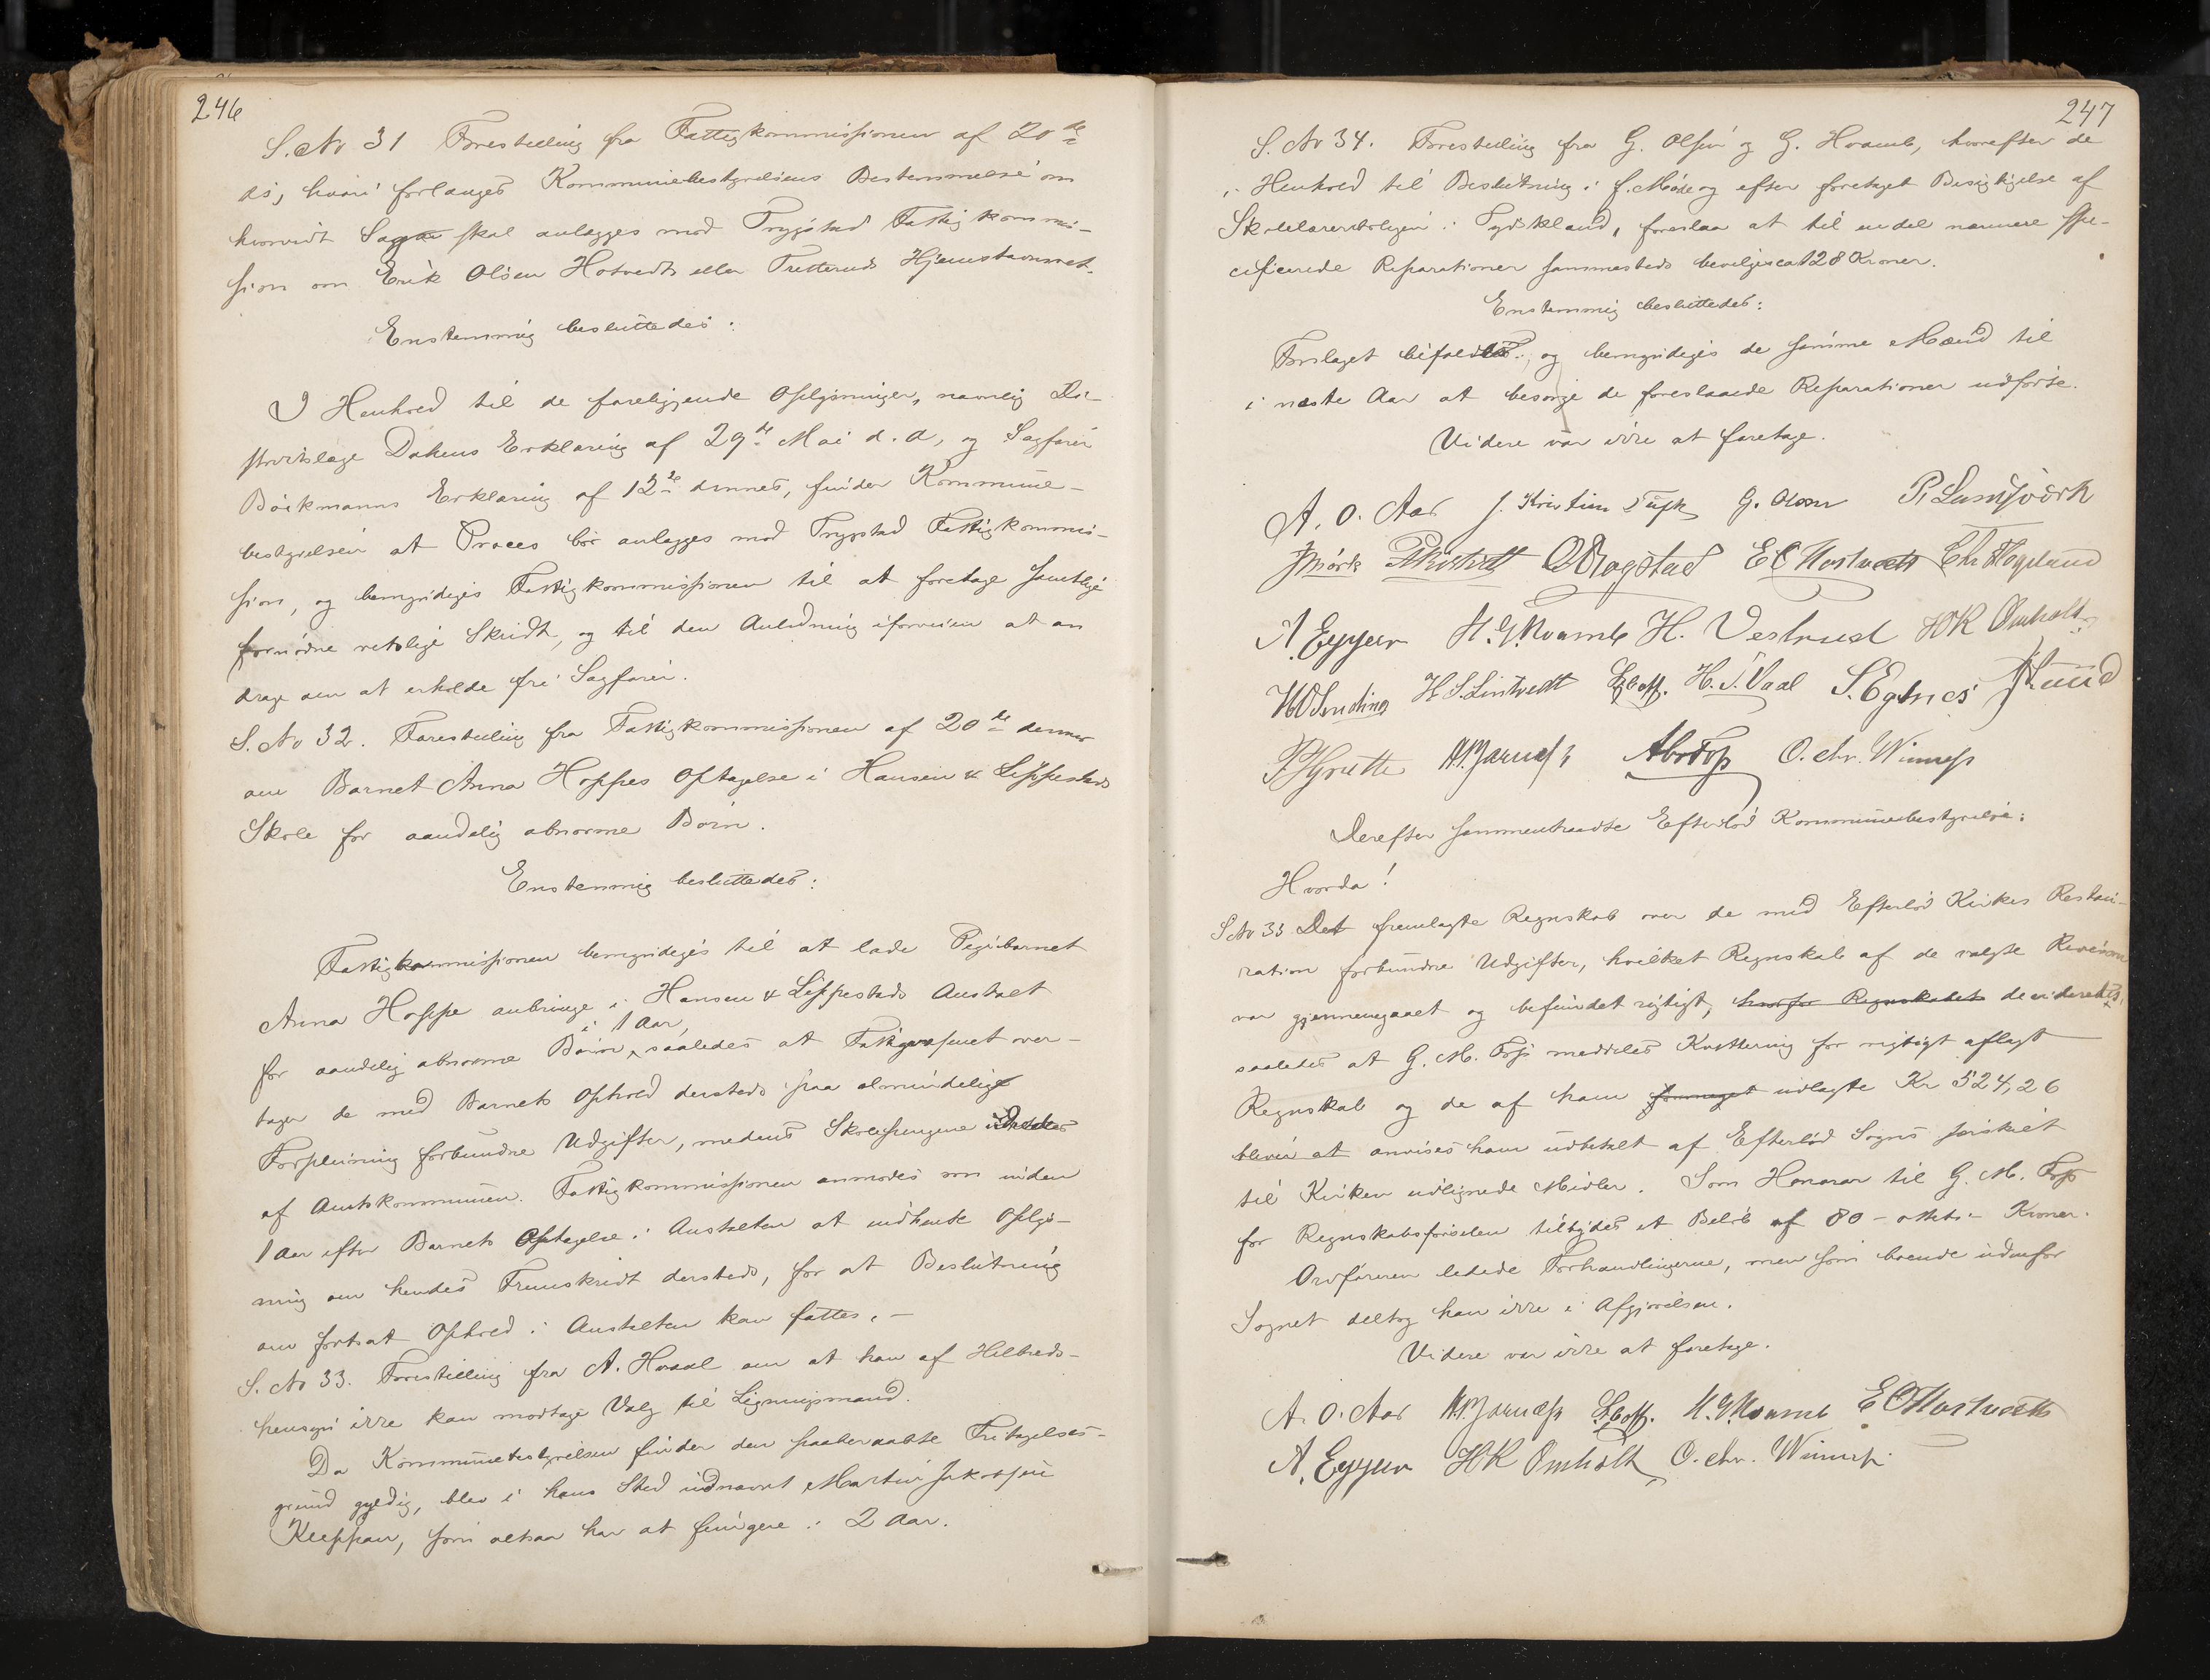 246
S. No 31 Forestilling fra Fattigkommissionen af 20de
ds, hvori forlanges Kommunebestyrelsens Bestemmelse om
hvorvidt Sag skal anlægges mod Trygstad Fattigkommis-
sion om Erik Olsen Hotvedts eller Hjemstavnsret.
Enstemmig besluttedes:
I Henhold til de foreliggende Oplysninger, navnlig Di-
striktslæge Dahms Erklæring af 29de Mai d. A, og Sagfører
Böckmanns Erklæring af 12te dennes, finder Kommune-
bestyrelsen at Proces bør anlægges mod Trygstad Fattigkommis-
sion, og bemyndiges Fattigkommissionen til at foretage samtlige
fornødne retslige Skridt, og til den Anledning iforveien at an
drage om at erholde fri Sagfører.
S. No 32. Forestilling fra Fattigkommissionen af 20de dennes
om Barnet Anna Hoppes Optagelse i Hansen & Lippestads
Skole for aandelig abnorme Børn.
Enstemmig besluttedes:
Fattigkommissionen bemyndiges til at lade Pigebarnet
Anna Hoppe anbringe i Hansen & Lippestads Anstalt
i 1 Aar,
for aandelig abnorme Børn, saaledes at Fattigvæsenet over-
tager de med Barnets Ophold dersteds paa almindelig
Forpleining forbundne Udgifter, medens Skolepengene
af Amtskommunen. Fattigkommissionen anmodes om inden
1 Aar efter Barnets Optagelse i Anstalten at indhente Oplys-
ning om hendes Fremskridt dersteds, for at Beslutning
om fortsat Ophold i Anstalten kan fattes. –
S. No 33. Forestilling fra A. Hvaal om at han af Helbreds-
hensyn ikke kan modtage Valg til Ligningsmand.
Da Kommunebestyrelsen finder den paaberaabte Fritagelses-
grund gyldig, blev i hans Sted udnævnt Martin Jakobsen
Kleppan, som altsaa har at fungere i 2 Aar.
247
S. No 34. Forestilling fra G. Olsen og G. Hvamb, hvorefter de
i Henhold til Beslutning i f. Møde og efter foretaget Besigtigelse af
Skolelærerboligen i Tydskland, foreslaa at til en del nærmere spe-
cificerede Reparationer sammesteds bevilges ca 128 Kroner.
Enstemmig besluttedes:
Forslaget bifaldes, og bemyndiges de samme Mænd til
i næste Aar at besørge de foreslaaede Reparationer udførte.
Videre var ikke at foretage.
A. O. Aar J. Kristian Tufte G. Olsen P. Sundsvörk
J Mörk O Bogstad E C Hostvedt Chr Hogelund
A. Eggum H. G. Hvamb H. Vestrud HK Omholt
H. S. Lintvedt H. S. Vaal S. Egtnes J Ruud
P Grütte O. Chr. Winness
Derefter sammentraadte Efterlöd Kommunebestyrelse:
Hvorda!
S No 33 Det fremlagte Regnskab over de med Efterlöd Kirkes Restau-
ration forbundne Udgifter, hvilket Regnskab af de valgte Revisorer
var gjennemgaaet og befundet rigtigt, hvorfor Regnskabet decideredes,
saaledes at G. M. Foss meddeles Kvittering for rigtigt aflagt
Regnskab og de af ham formeget udlagte Kr 524,26
bliver at anvises ham udbetalt af Efterlöd Sogns særskilt
til Kirken udlignede Midler. Som Honorar til G. M. Foss
for Regnskabsførselen tilbydes et Beløb af 80 – otteti – Kroner.
Ordføreren ledede Forhandlingerne, men som boende udenfor
Sognet deltog han ikke i Afgjørelsen.
Videre var ikke at foretage.
A. O. Aar H. G. Hvamb E C Hostvedt
A. Eggum HK Omholt O. Chr. Winness